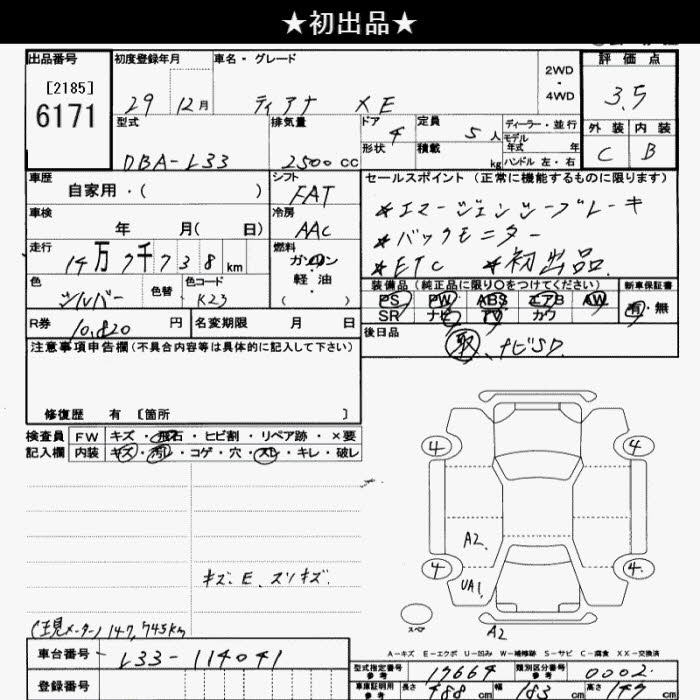 ★初出品★
出品番号 初度登録年月 車名・グレード 2WD・4WD 評価点
[2185]
6171
29 12月 ティアナ XE 3.5
型式 排気量 ドア 4 定員 5人 ディーラー・並行 外装 内装
形状 積載 kg モデル年式 年 ハンドル 左・右
DBA-L33 2500cc C B
車歴 シフト セールスポイント(正常に機能するものに限ります)
自家用・( ) FAT
*エマージェンシーブレーキ
車検 冷房
年 月( 日) AAC *バックモニター
走行 燃料
14万7千738km ガソリン・軽油 *ETC *初出品
色 色替 色コード 装備品(純正品に限り○をつけてください) 新車保証書
シルバー K23 PS PW ABS エアB AW 有・無
SR ナビ TV カワ
R券 10,820円 名変期限 月 日 後日品
取、ナビSD.
注意事項申告欄(不具合内容等は具体的に記入して下さい)
修復歴 有 〔箇所 〕
検査員 FW キズ・飛石・ヒビ割・リペア跡・×要
記入欄 内装 キズ・汚レ・コゲ・穴・スレ・キレ・破レ
4 4
A2
キズ. E. スリキズ.
4 4
UA1
スペア A2
(現メーター) 147,745km
A-キズ E-エクボ U-凹み W-補修跡 S-サビ C-腐食 XX-交換済
車台番号 L33-114041
型式指定番号 参考 17664 類別区分番号 参考 0002
登録番号
車庫証明用 参考 長さ 488cm 幅 183cm 高さ 149cm